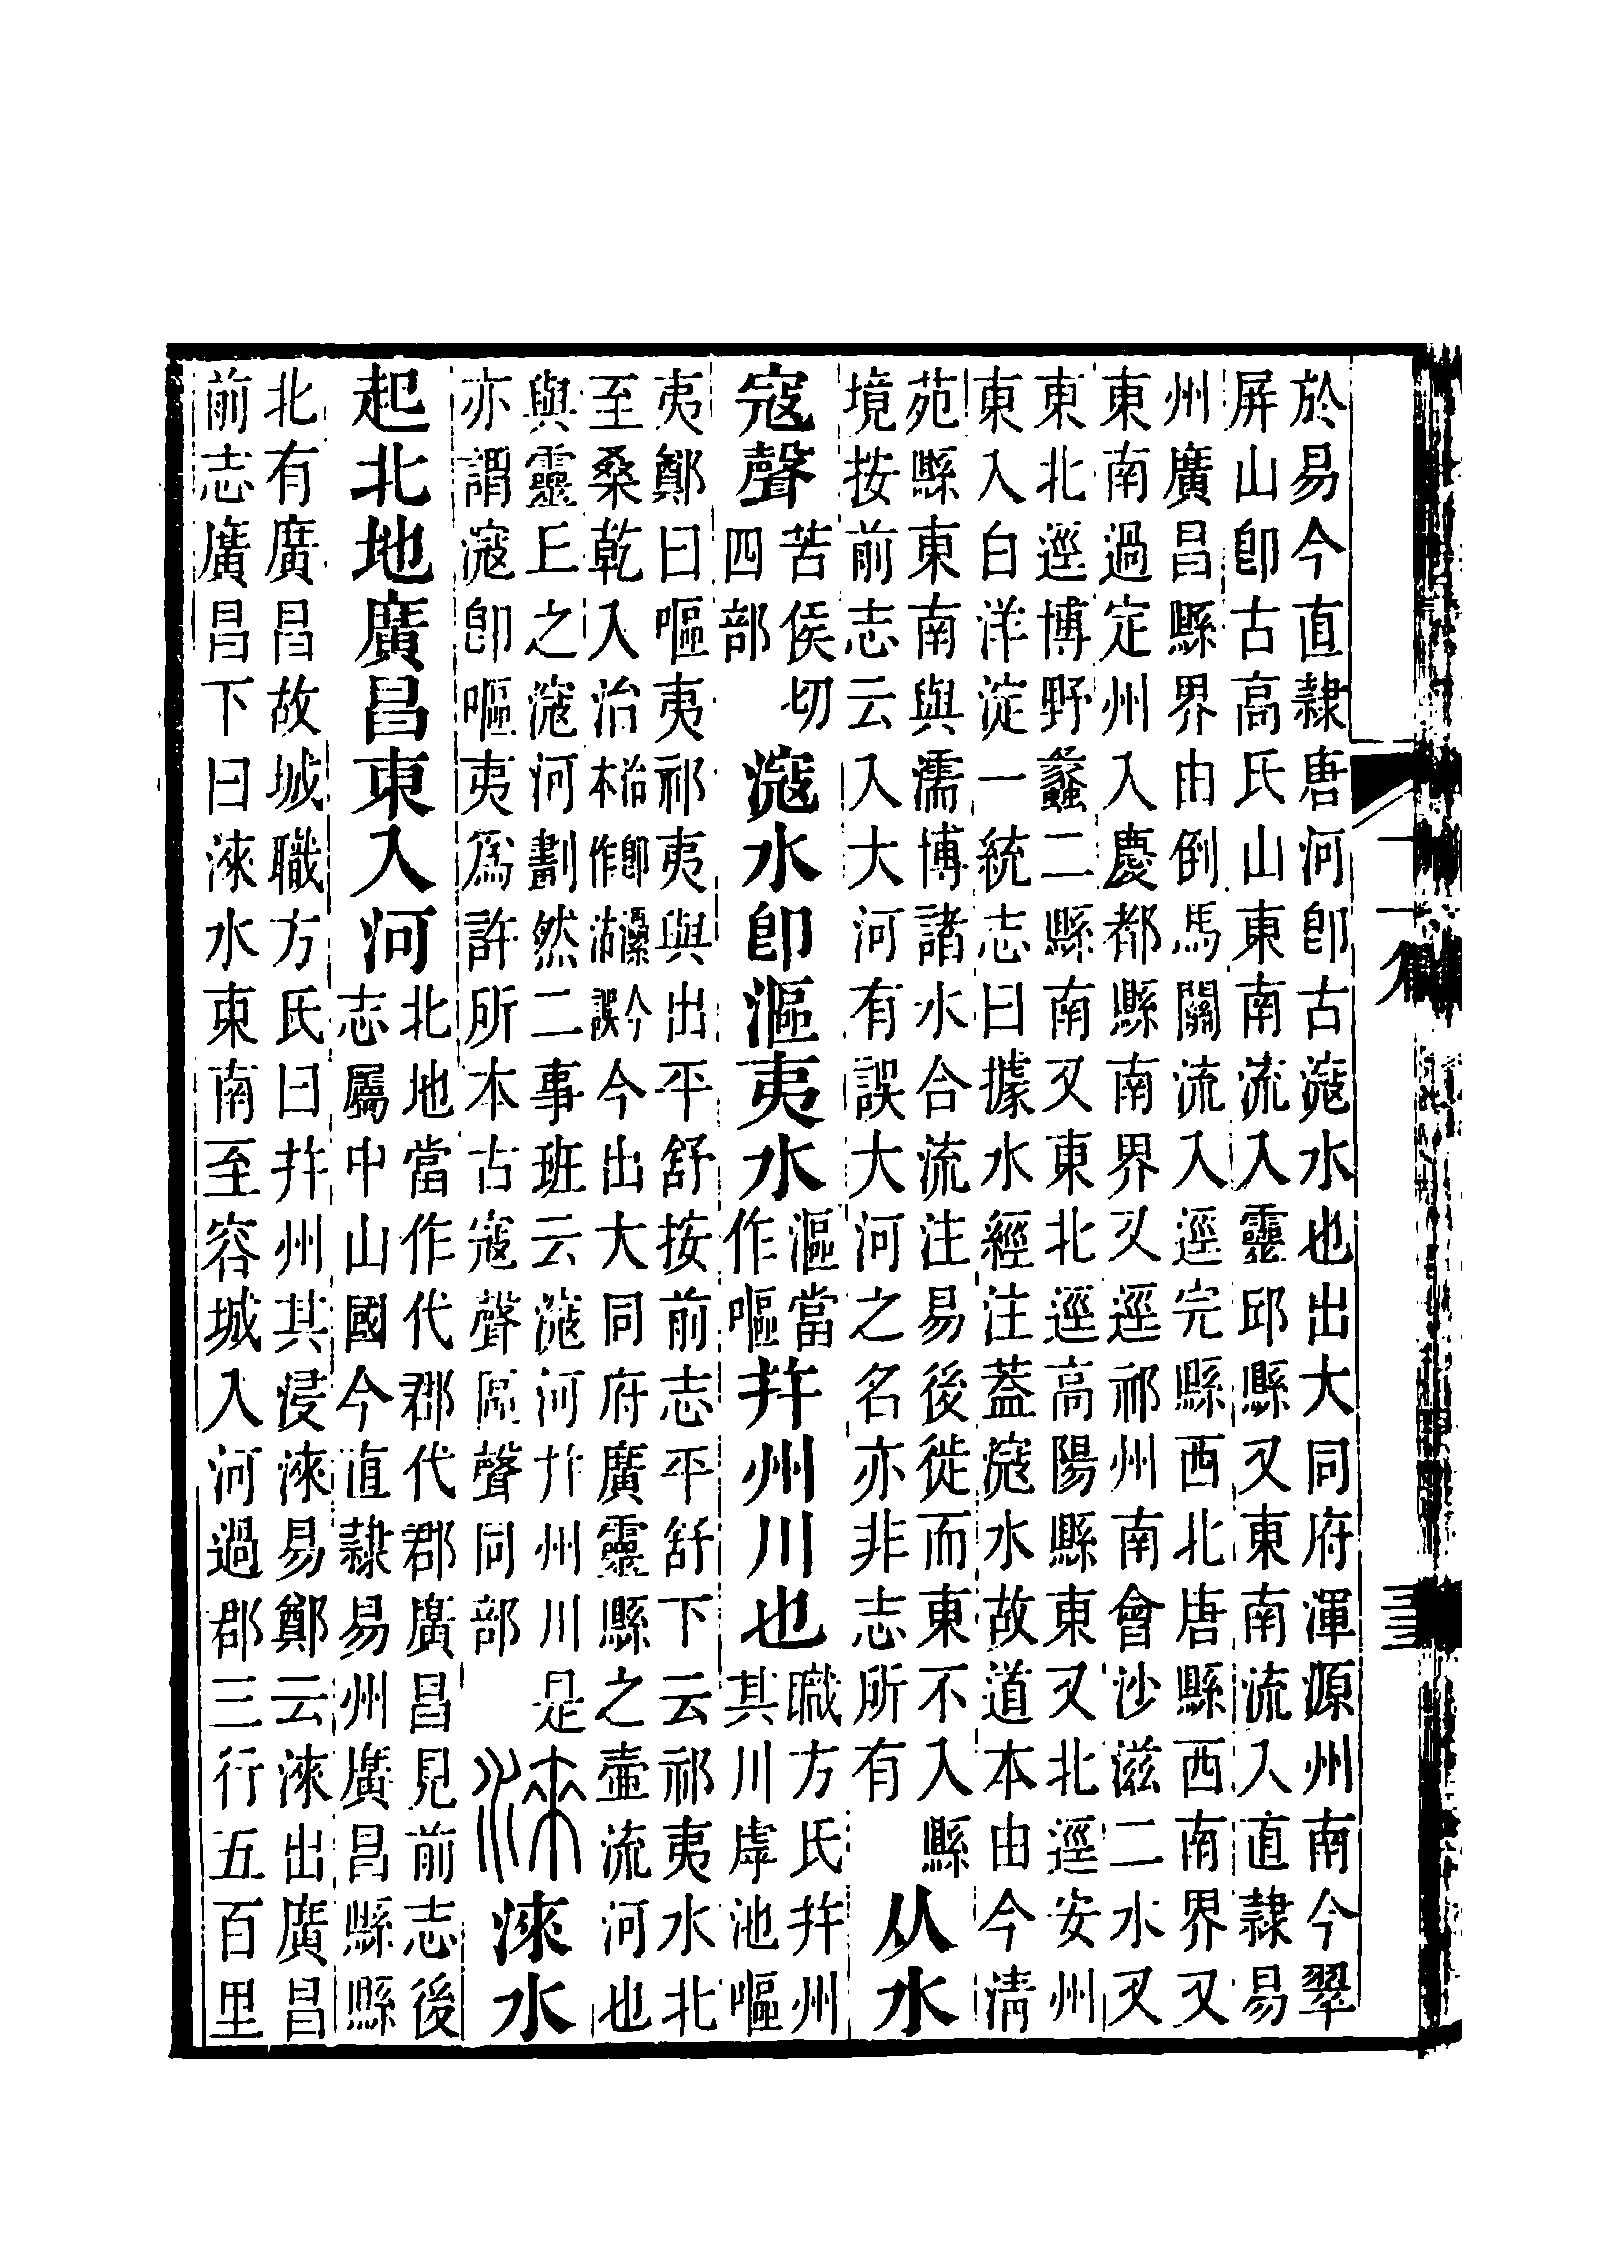 於易今直隸唐河卽古滱水也出大同府渾源州南今翠
屏山卽古高氏山東南流入靈邱縣又東南流入直隸易
州廣昌縣界由倒馬關流入逕完縣西北唐縣西南界又
東南過定州入慶都縣南界又逕祁州南會沙滋二水又
東北逕博野蠡二縣南又東北逕高陽縣東又北逕安州
東入白洋淀一統志曰據水經注葢滱水故道本由今淸
苑縣東南與濡博諸水合流注易後徙而東不入縣
境按前志云入大河有誤大河之名亦非志所有
从水
寇聲
苦侯切
四部
滱水卽漚夷水
漚當
作嘔
幷州川也
職方氏幷州
其川虖池嘔
夷鄭曰嘔夷祁夷與出平舒按前志平舒下云祁夷水北
至桑乾入治治卽㶟今本作沽誤今出大同府廣靈縣之壺流河也
與靈丘之滱河劃然二事班云滱河幷州川是
亦謂滱卽嘔夷爲許所本古寇聲區聲同部
淶淶水
起北地廣昌東入河
北地當作代郡代郡廣昌見前志後
志屬中山國今直隸易州廣昌縣縣
北有廣昌故城職方氏曰幷州其浸淶易鄭云淶出廣昌
前志廣昌下曰淶水東南至容城入河過郡三行五百里